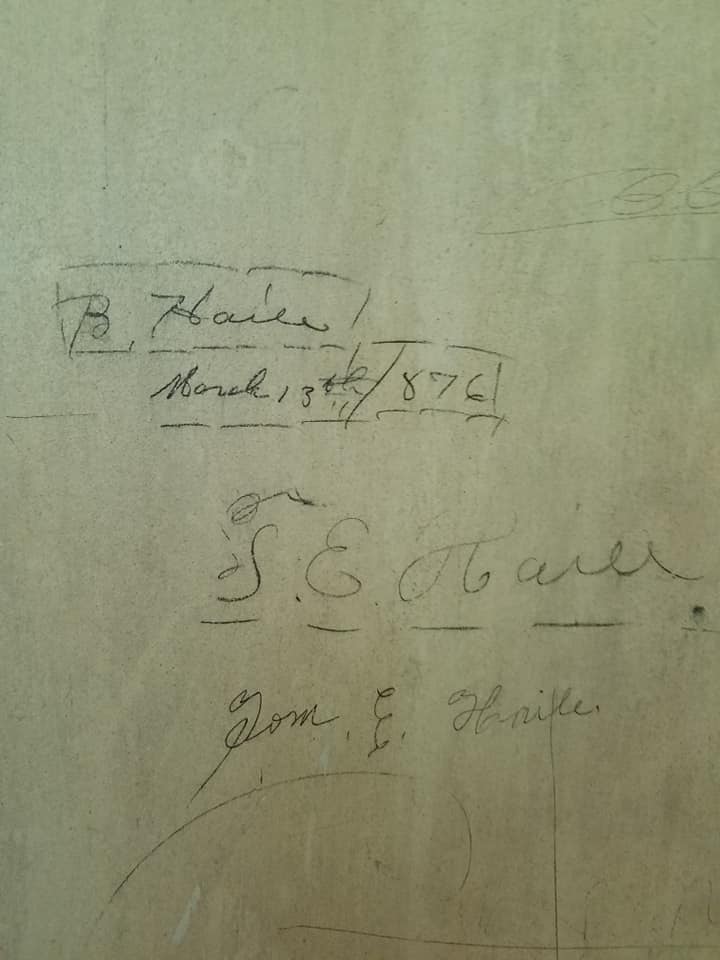 B. Haile
March 13th 1876
T. E. Haile.
Tom. E. Haile.